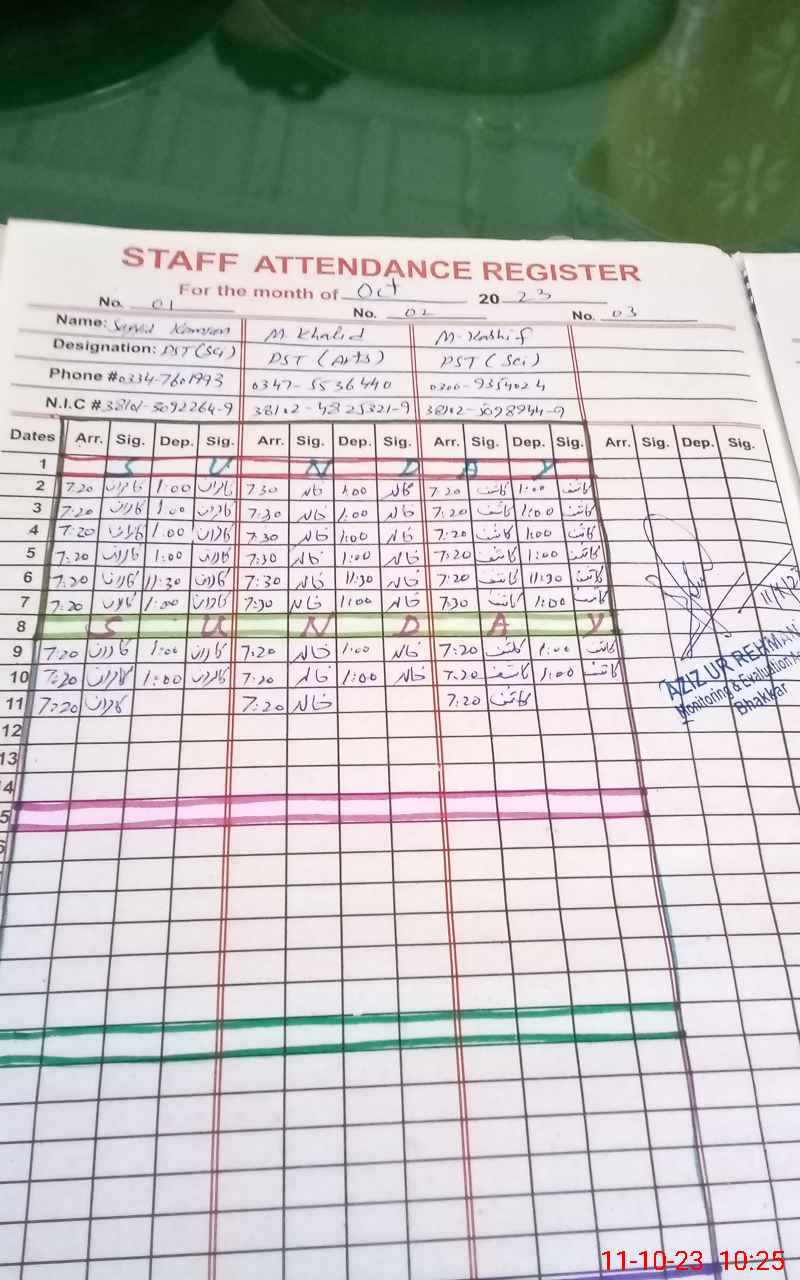 STAFF ATTENDANCE REGISTER
For the month of Oct 20 23
No. 01 No. 02 No. 03
Name: Kamran M. Khalid M. Kashif
Designation: PST (Sci) PST (Arts) PST (Sci)
Phone # 0334-7601993 0347-5536440 0300-9354024
N.I.C # 38101-5092264-9 38102-4825321-9 38102-5098944-9
Dates Arr. Sig. Dep. Sig. Arr. Sig. Dep. Sig. Arr. Sig. Dep. Sig. Arr. Sig. Dep. Sig.
1 S U N D A Y
2 7:20 کامران 1:00 کامران 7:30 خالد 1:00 خالد 7:20 کاشف 1:00 کاشف
3 7:20 کامران 1:00 کامران 7:30 خالد 1:00 خالد 7:20 کاشف 1:00 کاشف
4 7:20 کامران 1:00 کامران 7:30 خالد 1:00 خالد 7:20 کاشف 1:00 کاشف
5 7:20 کامران 1:00 کامران 7:30 خالد 1:00 خالد 7:20 کاشف 1:00 کاشف
6 7:20 کامران 11:30 کامران 7:30 خالد 11:30 خالد 7:20 کاشف 11:30 کاشف
7 7:20 کامران 1:00 کامران 7:30 خالد 1:00 خالد 7:30 کاشف 1:00 کاشف
8 S U N D A Y
9 7:20 کامران 1:00 کامران 7:20 خالد 1:00 خالد 7:20 کاشف 1:00 کاشف
10 7:20 کامران 1:00 کامران 7:20 خالد 1:00 خالد 7:20 کاشف 1:00 کاشف
11 7:20 کامران 7:20 خالد 7:20 کاشف
12
13
14
5
AZIZ UR REHMAN
Monitoring & Evaluation
Bhakkar
11-10-23 10:25